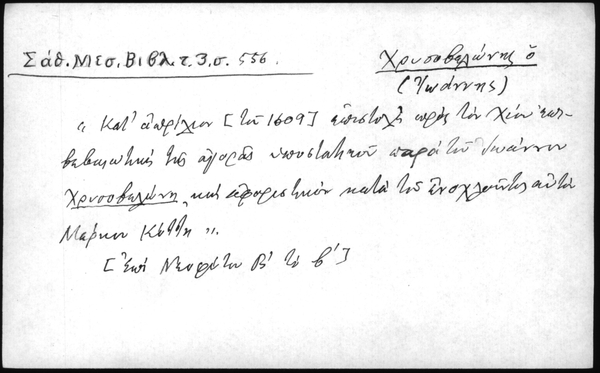 Σάθ. Μεσ. Βιβλ. τ. 3, σ. 556.
Χρυσοβελώνης ὁ
(Ἰωάννης)
„ Κατ' ἀπρίλιον [τοῦ 1609] ἐπιστολὴ πρὸς τὸν Χίου ἐπι-
βεβαιωτικὴ τῆς ἀγορᾶς ὑποστατικοῦ παρὰ τοῦ Ἰωάννου
Χρυσοβελώνη, καὶ ἀφοριστικὸν κατὰ τοῦ ἐνοχλοῦντος αὐτὸν
Μάρκου Κόττη „.
[Ἐπὶ Νεοφύτου Β' τὸ β']